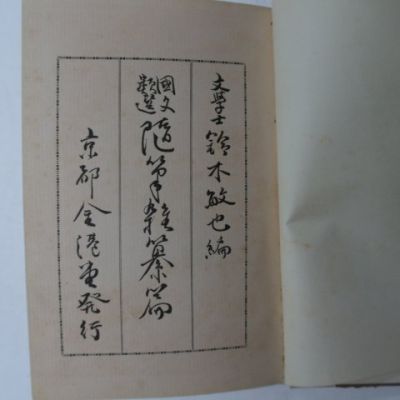 文學士 鈴木敏也編
國文類選 随筆雜纂篇
京都 金港堂発行